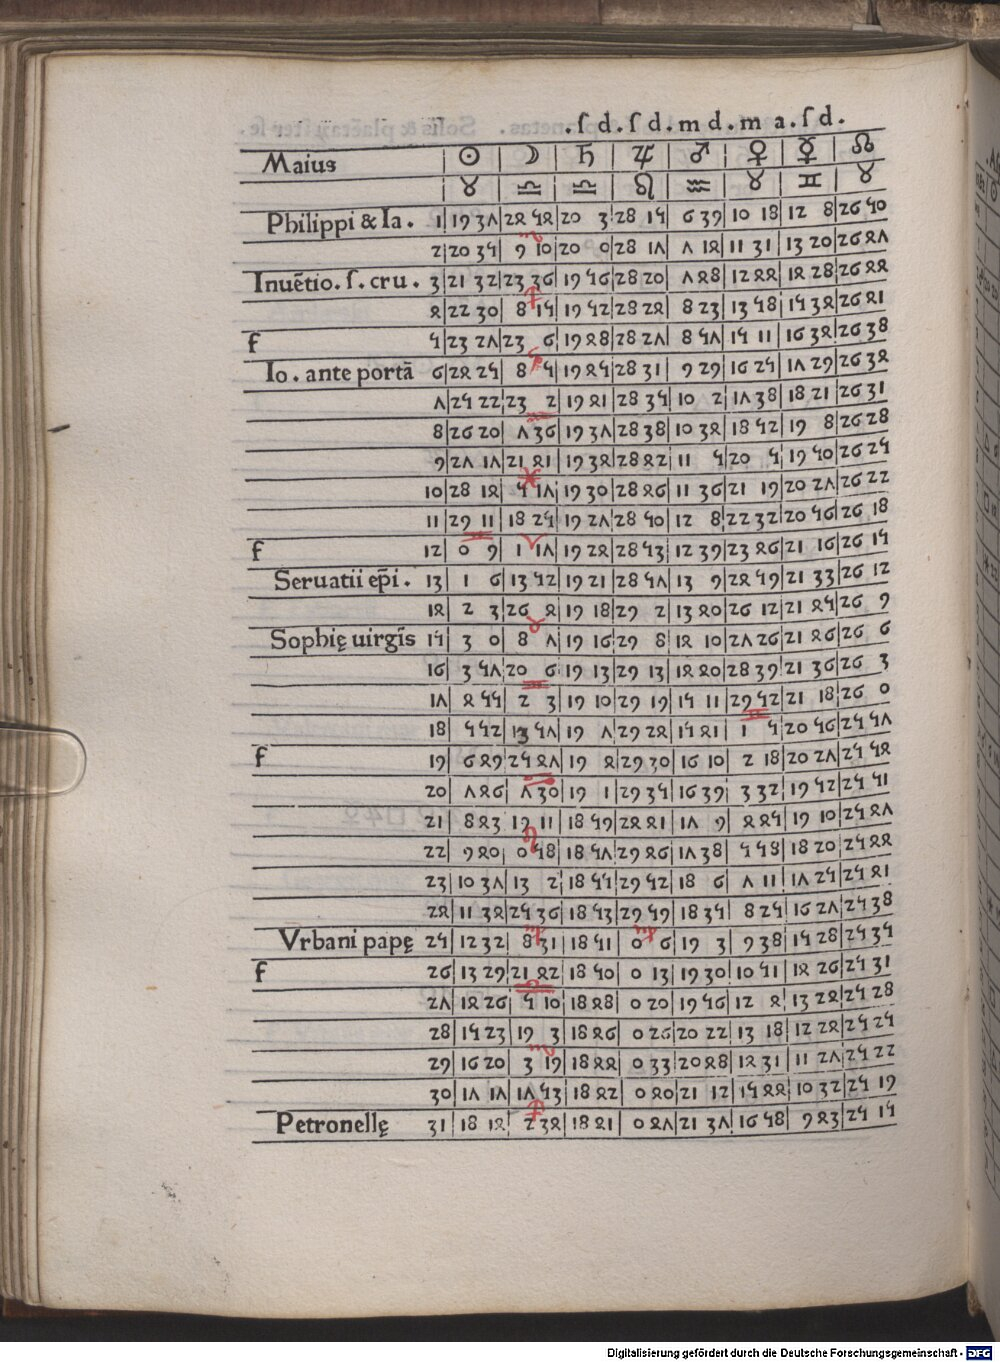 . ſ d . ſ d . m d . m a . ſ d .
Maius ☉ ☽ ♄ ♃ ♂ ♀ ☿ ☊
♉ ♎ ♎ ♌ ♒ ♉ ♊ ♉
Philippi & Ia . 1 19 37 24 54 20 3 28 15 6 39 10 18 12 8 26 50
♏
2 20 35 9 10 20 0 28 17 7 14 11 31 13 20 26 47
Inuẽtio . ſ . cru . 3 21 32 23 36 19 56 28 20 7 48 12 44 14 28 26 44
♐
4 22 30 8 15 19 52 28 24 8 23 13 58 15 34 26 41
f 5 23 27 23 6 19 48 28 27 8 57 15 11 16 34 26 38
♑
Io . ante portã 6 24 25 8 5 19 45 28 31 9 29 16 25 17 29 26 34
7 25 22 23 2 19 41 28 35 10 2 17 38 18 21 26 31
♒
8 26 20 7 36 19 37 28 38 10 34 18 52 19 8 26 28
9 27 17 21 41 19 34 28 42 11 5 20 5 19 50 26 25
♓
10 28 14 5 17 19 30 28 46 11 36 21 19 20 27 26 22
11 29 11 18 25 19 27 28 50 12 8 22 32 20 56 26 18
♊ ♈
f 12 0 9 1 17 19 24 28 53 12 39 23 46 21 16 26 15
Seruatii ep̃i . 13 1 6 13 52 19 21 28 57 13 9 24 59 21 33 26 12
14 2 3 26 4 19 18 29 2 13 40 26 12 21 45 26 9
♉
Sophię uirgĩs 15 3 0 8 7 19 16 29 8 14 10 27 26 21 46 26 6
16 3 57 20 6 19 13 29 13 14 40 28 39 21 36 26 3
♊
17 4 55 2 3 19 10 29 19 15 11 29 52 21 18 26 0
♊
18 5 52 13 57 19 7 29 24 15 41 1 5 20 56 25 57
f 19 6 49 25 47 19 4 29 30 16 10 2 18 20 27 25 54
♋
20 7 46 7 30 19 1 29 35 16 39 3 32 19 52 25 51
21 8 43 19 11 18 59 24 41 17 9 4 45 19 10 25 47
♌
22 9 40 0 58 18 57 29 46 17 38 5 58 18 20 25 44
23 10 37 13 2 18 55 29 52 18 6 7 11 17 25 25 41
24 11 34 25 36 18 53 29 59 18 35 8 25 16 27 25 38
♍ ♍
Vrbani papę 25 12 32 8 31 18 51 0 6 19 3 9 38 15 28 25 35
f 26 13 29 21 42 18 50 0 13 19 30 10 51 14 26 25 31
♎
27 14 26 5 10 18 48 0 20 19 56 12 4 13 24 25 28
28 15 23 19 3 18 46 0 26 20 22 13 18 12 24 25 25
♏
29 16 20 3 19 18 44 0 33 20 48 14 31 11 27 25 22
30 17 17 17 53 18 42 0 40 21 12 15 44 10 32 25 19
♐
Petronellę 31 18 14 2 34 18 41 0 47 21 37 16 58 9 43 25 15
Digitalisierung gefördert durch die Deutsche Forschungsgemeinschaft - DFG